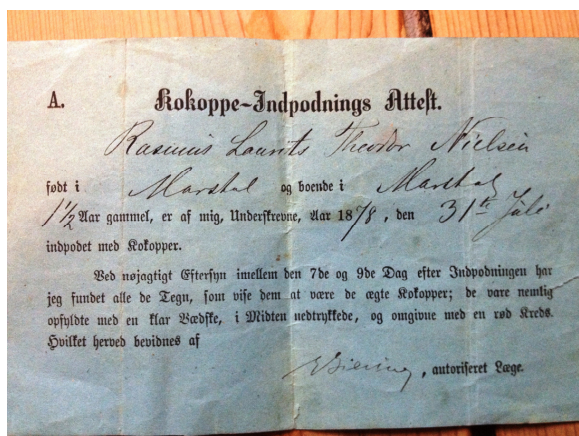 A. Kokoppe-Indpodnings Attest.
Rasmus Laurits Theodor Nielsen
født i Marstal og boende i Marstal
1 1/2 Aar gammel, er af mig, Underskrevne, Aar 1878, den 31te Juli
indpodet med Kokopper.
Ved nøjagtigt Eftersyn imellem den 7de og 9de Dag efter Indpodningen har
jeg fundet alle de Tegn, som vise dem at være de ægte Kokopper; de vare nemlig
opfyldte med en klar Vædske, i Midten nedtrykkede, og omgivne med en rød Kreds.
Hvilket herved bevidnes af
, autoriseret Læge.